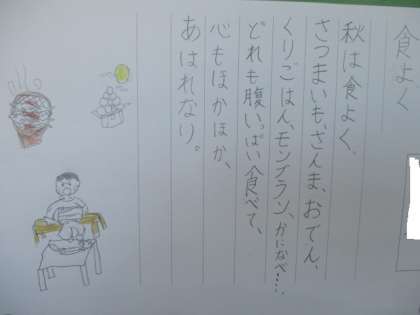 食よく
秋は食よく。
さつまいも、さんま、おでん、
くりごはん、モンブラン、かになべ……
どれも腹いっぱい食べて、
心もほかほか、
あはれなり。